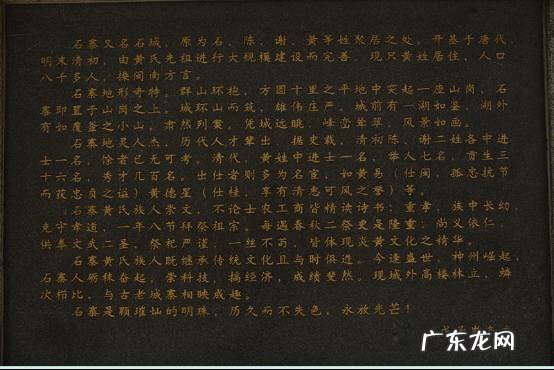 石寨又名石城，原为石、陈、谢、黄等姓聚居之处，开基于唐代，
明末清初，由黄氏先祖进行大规模建设而完善。现只黄姓居住，人口
八千多人，操闽南方言。
石寨地形奇特。群山环抱，方圆十里之平地中突起一座山岗，石
寨即置于山岗之上。城环山而筑，雄伟庄严。城前有一湖如鉴，湖外
有如覆釜之小山，肃然列案。凭城远眺，峰峦苍翠，风景如画。
石寨地灵人杰，历代人才辈出，据史载，清初陈、谢二姓各中进
士一名，馀者已无可考。清代，黄姓中进士一名，举人七名，贡生三
十六名，秀才几百名。出仕者则多为名宦，如黄易（仕闽，孤忠抗节
而获忠贞之谥）黄德星（仕桂，享有清惠可风之誉）等。
石寨黄氏族人崇文。不论士农工商皆精读诗书；重孝，族中长幼，
克守孝道，一年八节拜祭祖宗。每遇春秋二祭更是隆重；尚义依仁，
供奉文武二圣，祭祀严谨，一丝不苟，皆体现炎黄文化之精华。
石寨黄氏族人既继承传统文化且与时俱进。今逢盛世，神州崛起，
石寨人砺秣奋起，崇科技，搞经济，成绩斐然。现城外高楼林立，鳞
次栉比，与古老城寨相映成趣。
石寨是颗璀灿的明珠，历久而不失色，永放光芒！
广东龙网